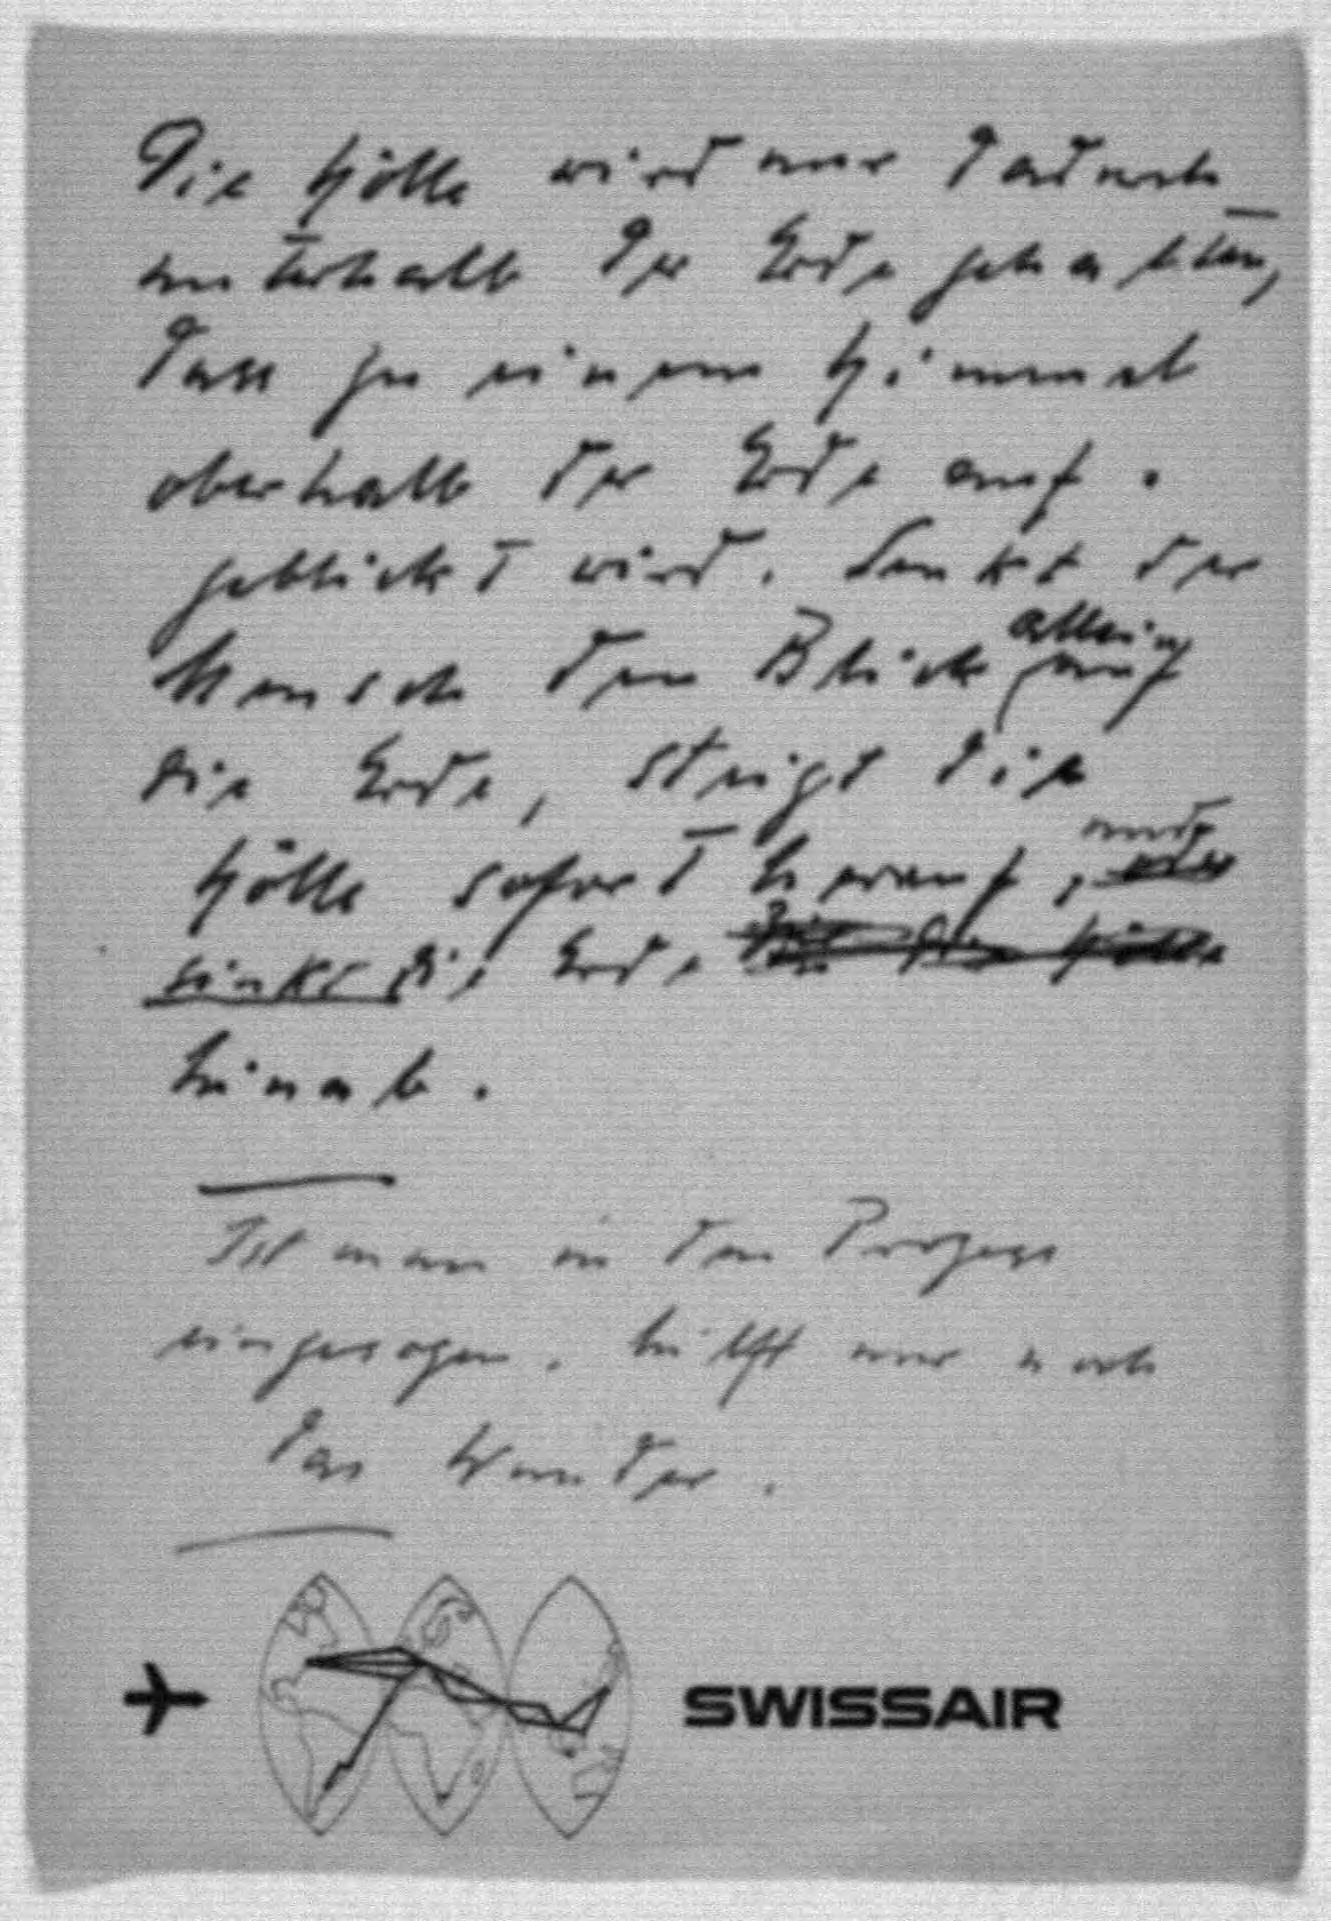 Die Hölle wird nur dadurch
unterhalb der Erde gehalten,
dass zu einem Himmel
oberhalb der Erde auf-
geblickt wird. Senkt der
Mensch den Blick allein auf
die Erde, steigt die
Hölle sofort herauf, und
sinkt die Erde
hinab.
Ist man in den Prozess
eingesogen, hilft nur noch
das Wunder.
SWISSAIR